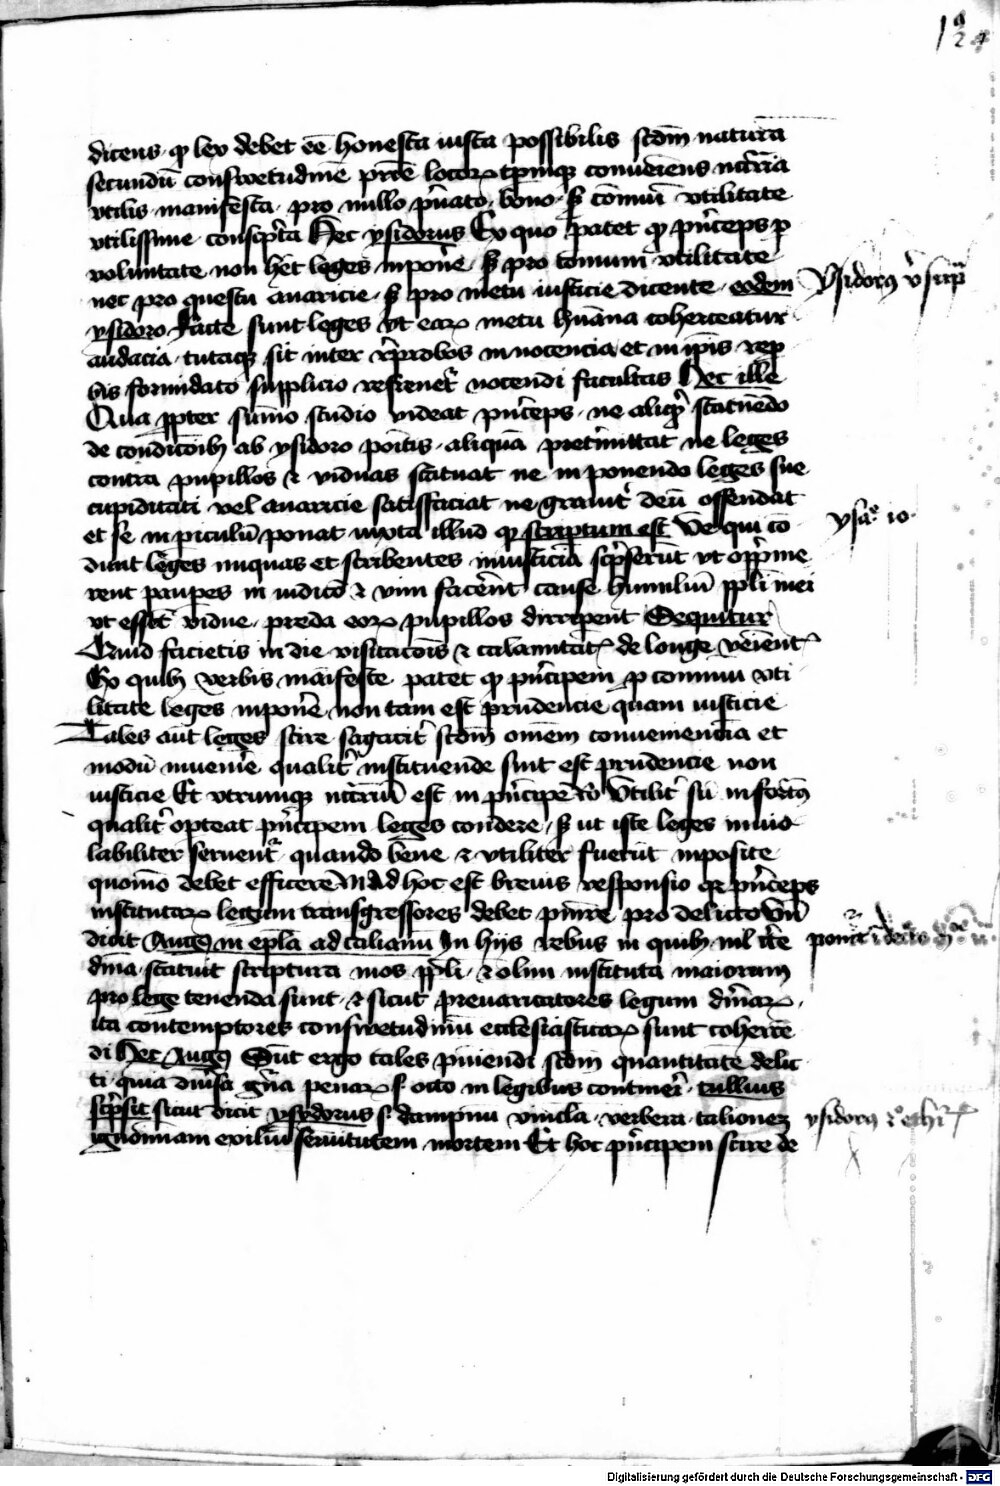 192
dicens · ꝙ lex debet eē honesta iusta possibilis scdm naturā
secundū consuetudinē prīe locoꝝ tpīnqꝫ conueniens nccīria
vtilis · manifesta · pro nullo pͥuato · bono · sꝫ cōmuni vtilitate
vtilissime conscpͥta Hec ysidorus Ex quo patet ꝙ pͥnceps ꝓ
voluntate non het leges inponere sꝫ pro comuni vtilitate
nec pro questu auaricie · sꝫ pro metu iusticie dicente · eodem
ysidoro Facte sunt leges vt eaꝝ metu humana coherceatur
audacia · tutaqꝫ sit inter reprobos innocencia et in ipīs
formidato supplicio refrenetͬ nocendi facultas Hec ille
Qua ꝓpter sumo studio videat pͥnceps · ne aliqͥs statuēdo
de condicōibꝫ ab ysidoro poitis · aliquā pretͥmittat ne leges
contra pupillos ⁊ viduas statuat ne in ponendo leges sue
cupiditati vel auaricie satisfaciat ne grauitͥ deū offendat
et se in piculū ponat iuxta illud ꝙ scriptum est Ve qui cō
dunt leges iniquas et scribentes iniusticiā scpͥserūt vt oppͥme
rent paupes in iudico ⁊ vim facerēt cause humiliū ppli mei
vt essēt vidue · preda eoꝝ pupillos diriperent Sequitur
Quid facietis in die visitacōis ⁊ calamitatꝭ de longe veniēntꝭ
Ex quibꝫ verbis manifeste patet ꝙ pͥncipem ꝓ communi vti
litate leges inponere non tam est prudencie quam iusticie
Tales aūt leges scire sagacitͥ scdm omēm conuenienciā et
modū inuenire qualitͥ instituende sint est prudencie non
iusticie Et vtrumqꝫ nccīriū est in pͥncipe
qualitͥ opteat pͥncipem leges condere · sꝫ ut iste leges inuio
labiliter seruentͬ quando bene ⁊ vtiliter fuerūt inposite
quomō debet efficere Ad hoc est breuis responsio qꝫ pͥnceps
institutaꝝ legum transgressores debet punire pro delicto Vn̄
dicit Augꝰ in epla ad Hīs rebus in quibꝫ nīl
dīna · statuit scriptura mos ppli · ⁊ olim instituta maiorum
pro lege tenenda sunt · ⁊ sicut preuaricatores legum dīnaꝝ ·
ita contemptores consuetudinū ecclesiasticaꝝ sunt coherce
di Hec Augꝰ Sūt ergo tales puniendi scdm quantitatē delic
ti · quia diūsa gn̄a penaꝝ s · octo in legibus contineri · tullius
scpͥsit sicut dicit ysydorus s · dampnū vincla · verbera · talionez
ignominiam exiliū seruitutem mortem Et hoc pͥncipem scire de
Ysidorꝰ
ysa · 10 ·
ysidorꝰ
Digitalisierung gefördert durch die Deutsche Forschungsgemeinschaft - DFG